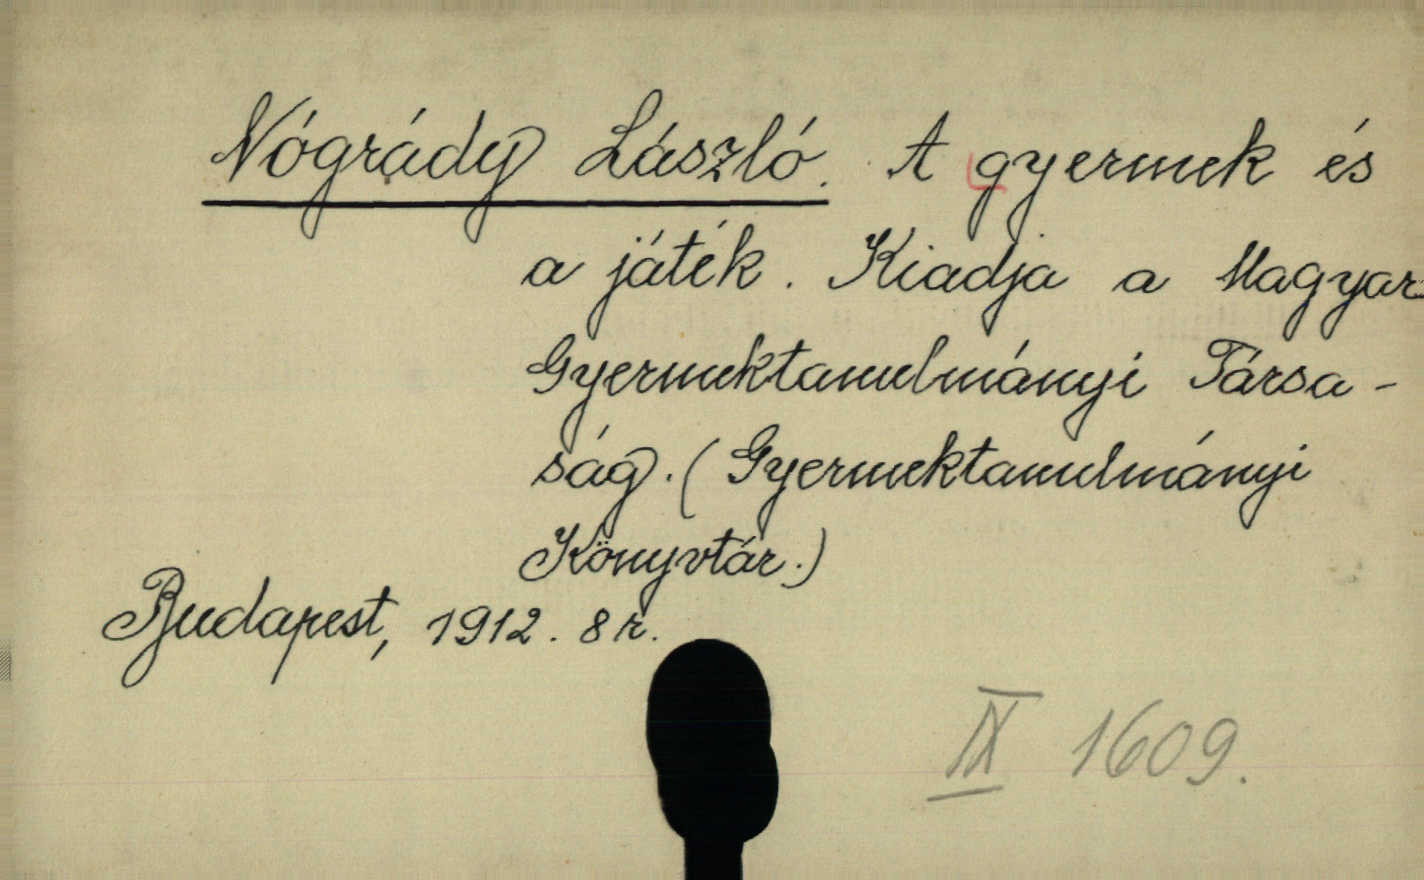 Nógrády László. A gyermek és
a játék. Kiadja a Magyar
Gyermektanulmányi Társa-
ság. (Gyermektanulmányi
Könyvtár.)
Budapest, 1912. 8r.
IX 1609.